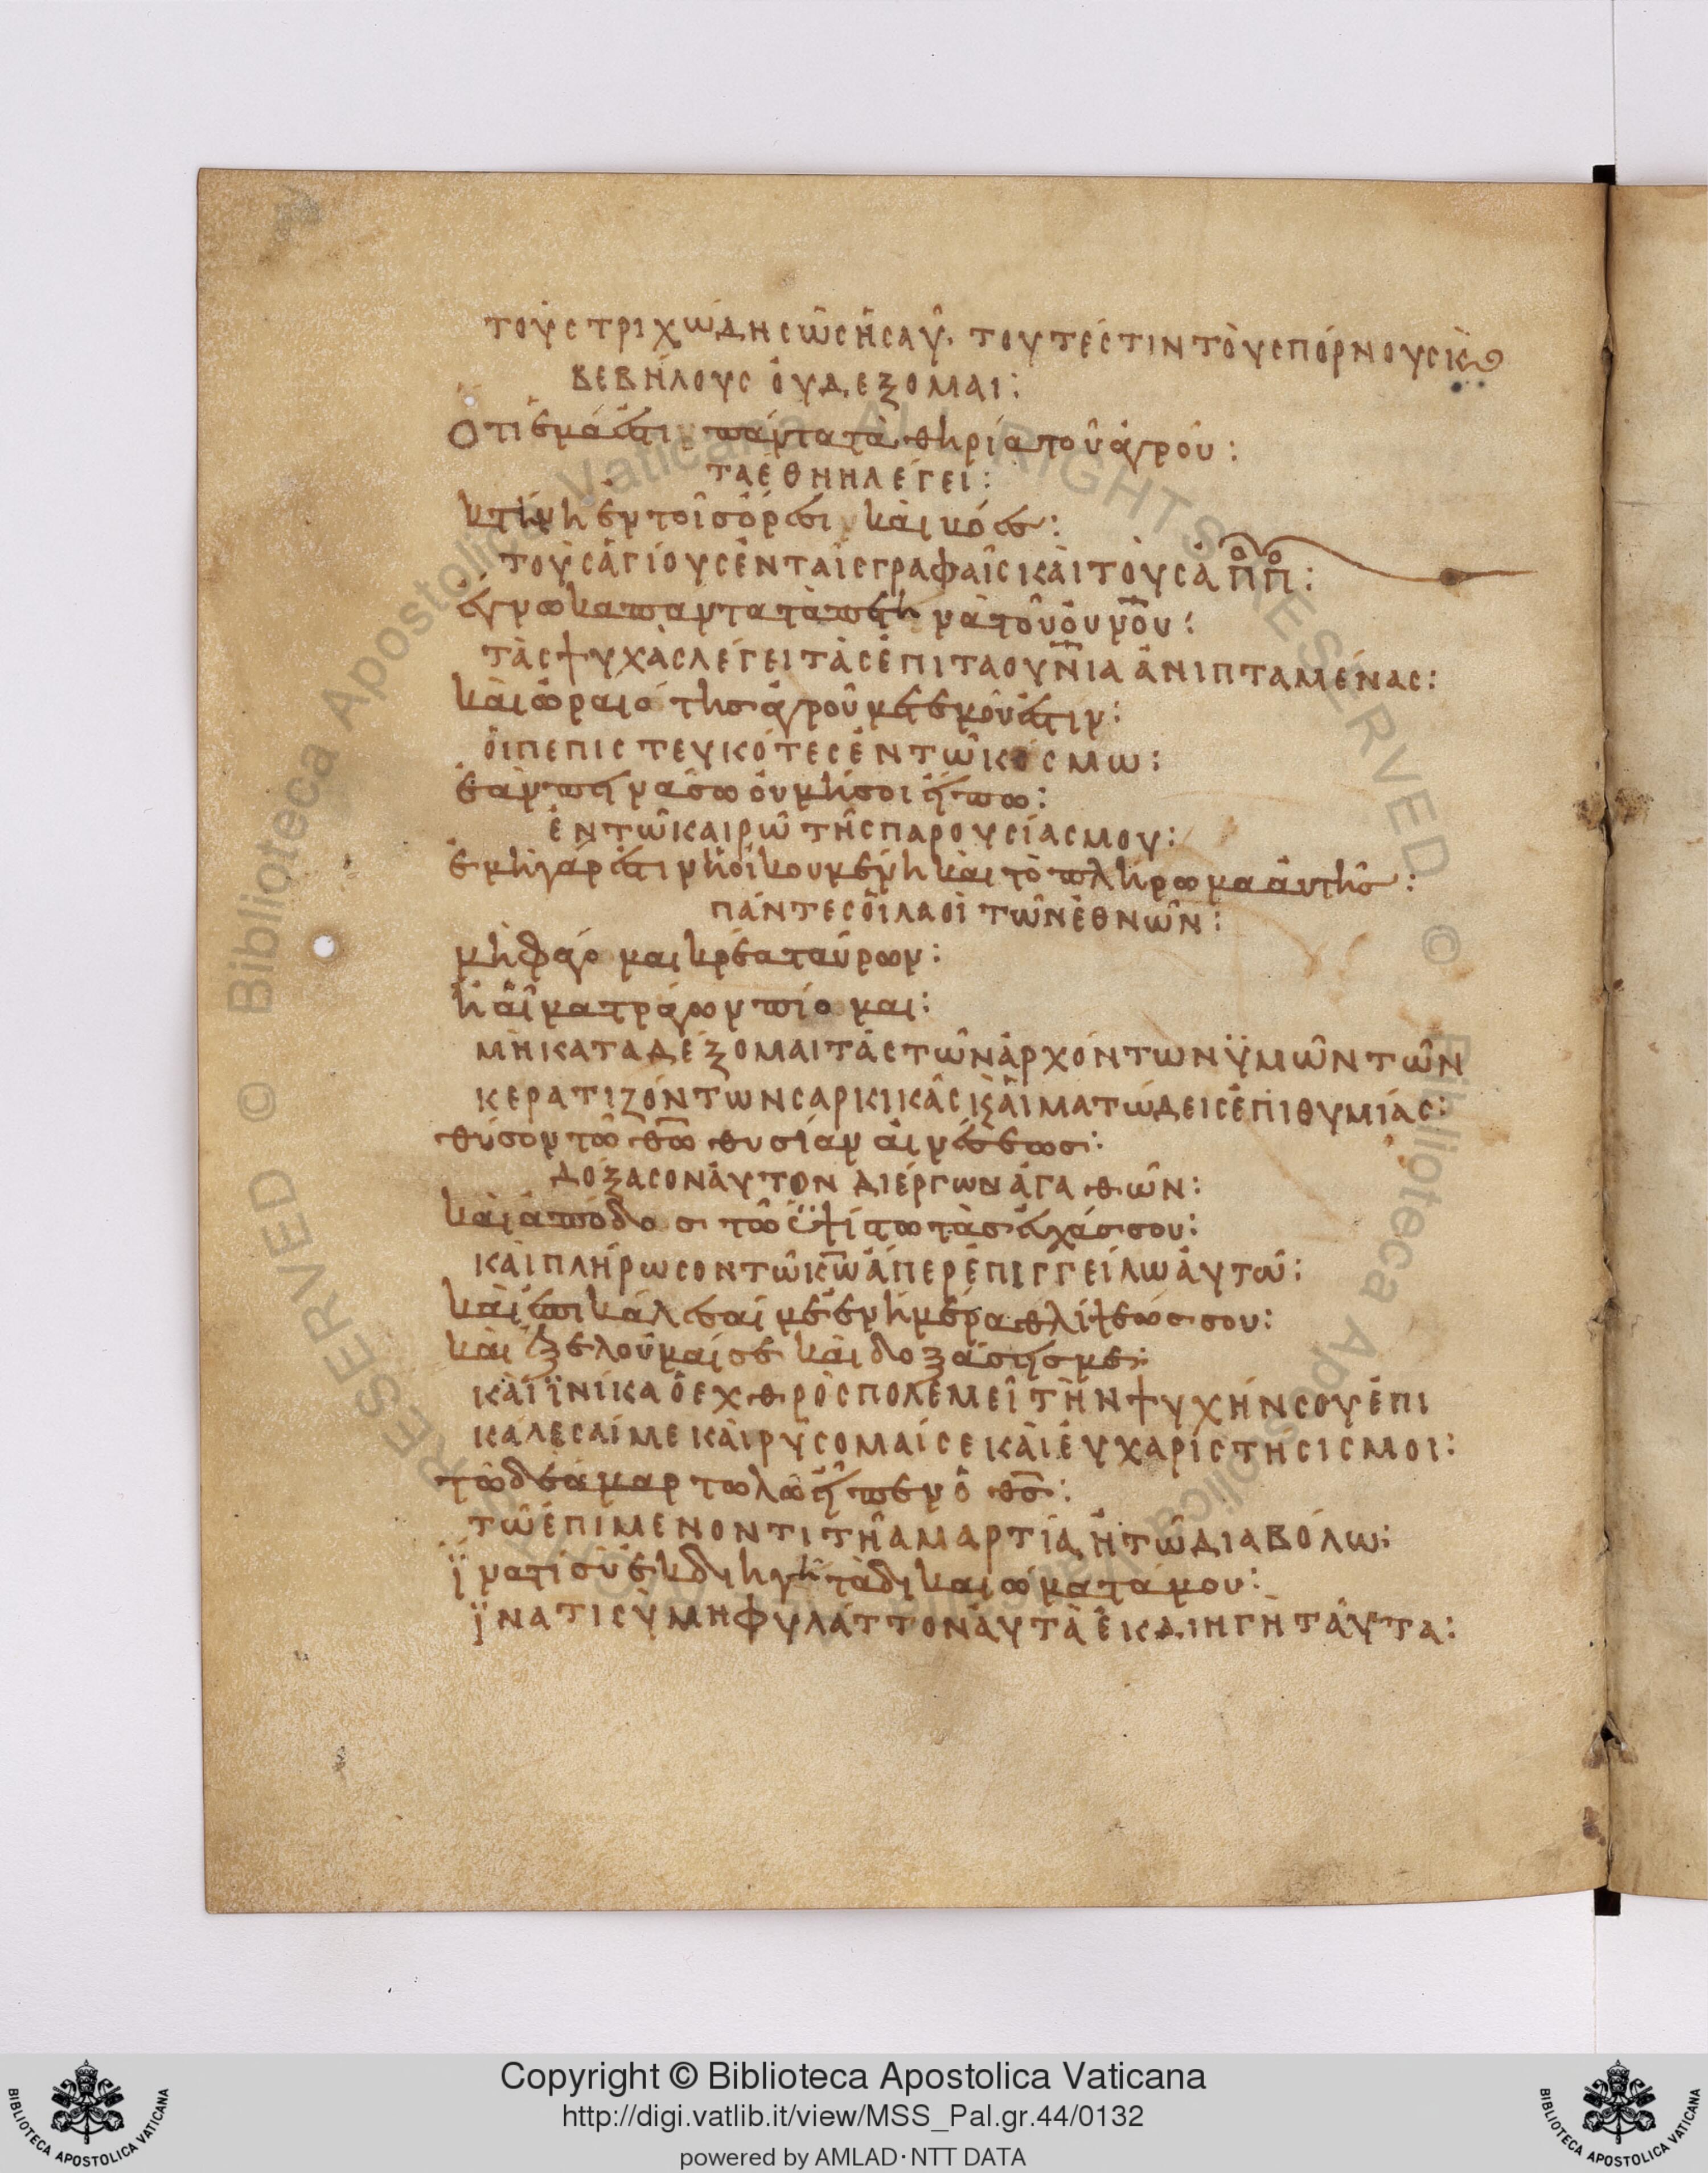 τοὺς τριχώδης ὡς ἦσαῦ· τουτέστιν τοὺς πόρνους κ(αὶ)
βεβήλους οὐ δέξομαι:
Ὅτι ἐμά ἐστι πάντα τὰ θηρία τοῦ ἀγροῦ:
τὰ ἔθνη λέγει:
κτήνη ἐν τοῖς ὄρεσι καὶ βόες:
τοὺς ἁγίους ἐν ταῖς γραφαῖς καὶ τοὺς ἀππο:
ἔγνωκα παντα τὰ πετηνὰ τοῦ οὐνου:
τὰς ψυχὰς λέγει τὰς ἐπὶ τα ουνια ἀνιπταμένας:
καὶ ὡραιότης ἀγροῦ μετ' ἐμοῦ ἐστιν:
οἱ πεπιστευκότες ἐν τῶ κόσμω:
ἐὰν πεινάσω οὐ μή σοι εἴπω:
ἐν τῶ καιρῶ τῆς παρουσίας μου:
ἐμὴ γάρ ἐστιν ἡ οἰκουμένη καὶ τὸ πλήρωμα αὐτῆς:
πάντες οἱ λαοὶ τῶν ἐθνῶν:
μὴ φάγομαι κρέα ταύρων:
ἢ αἷμα τράγων πίομαι:
μὴ καταδέξομαι τὰς τῶν ἀρχόντων ὑμῶν τῶν
κερατιζόντων σαρκικὰς κ(αὶ) αἱματώδεις ἐπιθυμίας:
θύσον τῶ θῶ θυσίαν αἰνέσεως:
δόξασον αὐτον δι' ἔργων ἀγαθῶν:
καὶ ἀπόδος τῶ ὑψίστω τὰς εὐχάς σου:
καὶ πλήρωσον τῶ κω ἅπερ ἐπιγγείλω αὐτῶ:
καὶ ἐπικάλεσαί με ἐν ἡμέρα θλίψεώς σου:
καὶ ἐξελοῦμαί σε καὶ δοξάσεις με:
καὶ ἡνίκα ὁ ἐχθρὸς πολεμεῖ τὴν ψυχήν σου ἐπι
κάλεσαί με καὶ ρύσομαί σε καὶ εὐχαρίστησις μοι:
τῶ δὲ ἁμαρτωλῶ εἶπεν ὁ θς:
τῶ ἐπιμένοντι τῆ ἁμαρτία, ἢ τῶ διαβόλω:
ἵνα τί σὺ ἐκδιηγῆ τὰ δικαιώματά μου:
ἵνα τί σὺ μη φυλάττον αὐτὰ ἐκδιηγῆ ταῦτα:
Copyright © Biblioteca Apostolica Vaticana
http://digi.vatlib.it/view/MSS_Pal.gr.44/0132
powered by AMLAD·NTT DATA
BIBLIOTECA APOSTOLICA VATICANA
BIBLIOTECA APOSTOLICA VATICANA